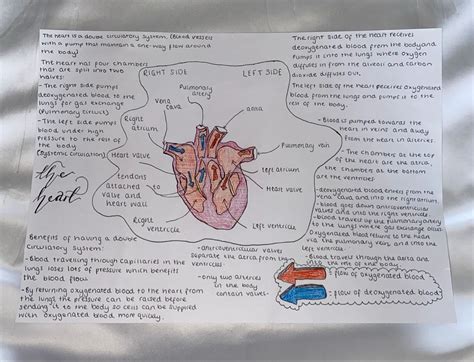 The heart is a double circulatory system. (Blood vessels
with a pump that maintain a one-way flow around
the body)
The heart has four chambers
that are split into two
halves:
- The right side pumps
deoxygenated blood to the
lungs for gas exchange
(Pulmonary circuit)
- The left side pumps
blood under high
pressure to the rest of
the body.
(Systemic circulation)
the
heart
Benefits of having a double
circulatory system:
- Blood travelling through capillaries in the
lungs loses lots of pressure which benefits
the blood flow.
- By returning oxygenated blood to the heart from
the lungs the pressure can be raised before
sending it to the body so cells can be supplied
with oxygenated blood more quickly.
RIGHT SIDE
LEFT SIDE
Pulmonary
artery
vena
cava
aorta
Right
atrium
Pulmonary vein
Heart valve
left atrium
tendons
attached to
valve and
heart wall
Heart valve
Right
ventricle
left ventricle
- Atrioventricular valves
separate the atria from the
ventricles
- only two arteries
in the body
contain valves.
The right side of the heart receives
deoxygenated blood from the body and
pumps it into the lungs where oxygen
diffuses in from the alveoli and carbon
dioxide diffuses out.
The left side of the heart receives oxygenated
blood from the lungs and pumps it to the
rest of the body.
- Blood is pumped towards the
heart in veins and away
from the heart in arteries.
- The chambers at the top
of the heart are the atria,
the chambers at the bottom
are the ventricles.
- deoxygenated blood enters from the
vena cava and into the right atrium.
- blood goes down atrioventricular
valves and into the right ventricle.
- blood travels up the pulmonary artery
to the lungs where gas exchange occurs
Oxygenated blood returns to the heart
via the pulmonary vein, and into the
left ventricle.
- Blood travels through the aorta and
into the rest of the body.
= flow of oxygenated blood
= flow of deoxygenated blood